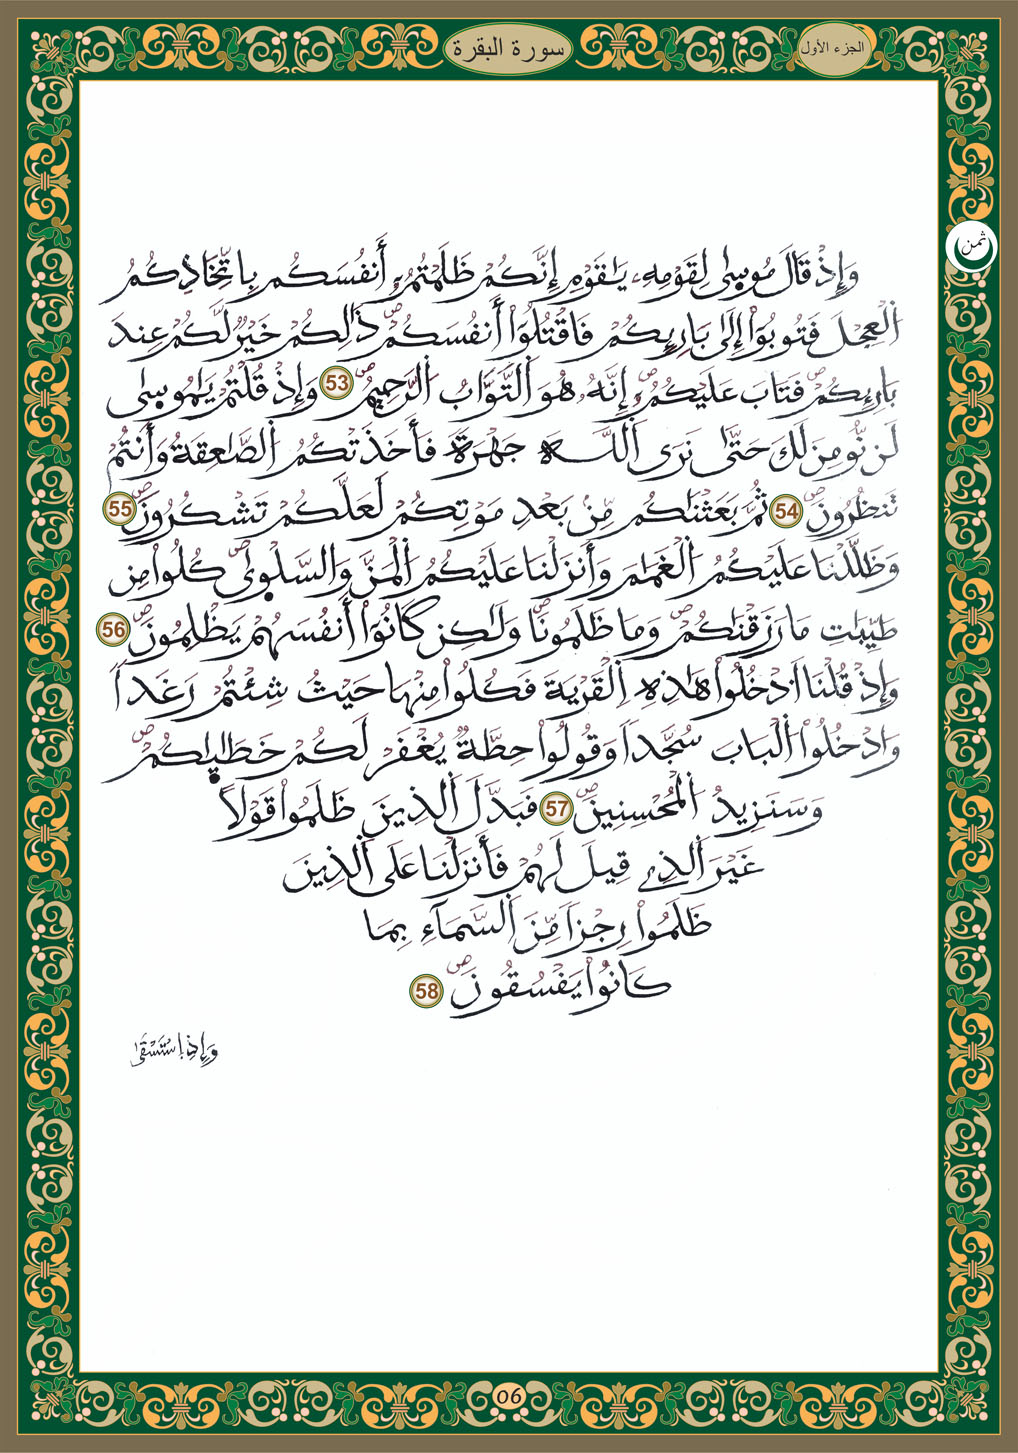 الجزء الأول
سورة البقرة
ثمن
وَإِذْ قَالَ مُوسِىٰ لِقَوْمِهِۦ يَٰقَوْمِ إِنَّكُمْ ظَلَمْتُمُۥٓ أَنفُسَكُم بِاتِّخَاذِكُمُ
اُلْعِجْلَ فَتُوبُوٓاْ إِلَىٰ بَارِئِكُمْ فَاقْتُلُوٓاْ أَنفُسَكُمْۖ ذَٰلِكُمْ خَيْرٌ لَّكُمْ عِندَ
بَارِئِكُمْۖ فَتَابَ عَلَيْكُمُۥٓۖ إِنَّهُۥ هُوَ اَلتَّوَّابُ اُلرَّحِيمُۖ 53 وَإِذْ قُلْتُمْ يَٰمُوسِىٰ
لَن نُّومِنَ لَكَ حَتَّىٰ نَرَى اَللَّهَ جَهْرَةً فَأَخَذَتْكُمُ اُلصَّٰعِقَةُ وَأَنتُمْ
تَنظُرُونَۖ 54 ثُمَّ بَعَثْنَٰكُم مِّنۢ بَعْدِ مَوْتِكُمْ لَعَلَّكُمْ تَشْكُرُونَۖ 55
وَظَلَّلْنَا عَلَيْكُمُ اُلْغَمَٰمَ وَأَنزَلْنَا عَلَيْكُمُ اُلْمَنَّ وَالسَّلْوِىٰۖ كُلُواْ مِن
طَيِّبَٰتِ مَا رَزَقْنَٰكُمْۖ وَمَا ظَلَمُونَاۖ وَلَٰكِن كَانُوٓاْ أَنفُسَهُمْ يَظْلِمُونَۖ 56
وَإِذْ قُلْنَا اَدْخُلُواْ هَٰذِهِ اِلْقَرْيَةَ فَكُلُواْ مِنْهَا حَيْثُ شِئْتُمْ رَغَداً
وَادْخُلُواْ اُلْبَابَ سُجَّداً وَقُولُواْ حِطَّةٌ يُغْفَرْ لَكُمْ خَطَٰيِٰكُمْۖ
وَسَنَزِيدُ اُلْمُحْسِنِينَۖ 57 فَبَدَّلَ اَلذِينَ ظَلَمُواْ قَوْلاً
غَيْرَ اَلذِے قِيلَ لَهُمْ فَأَنزَلْنَا عَلَى اَلذِينَ
ظَلَمُواْ رِجْزاً مِّنَ اَلسَّمَآءِ بِمَا
كَانُواْ يَفْسُقُونَۖ 58
وَإِذِ اِسْتَسْقَىٰ
06